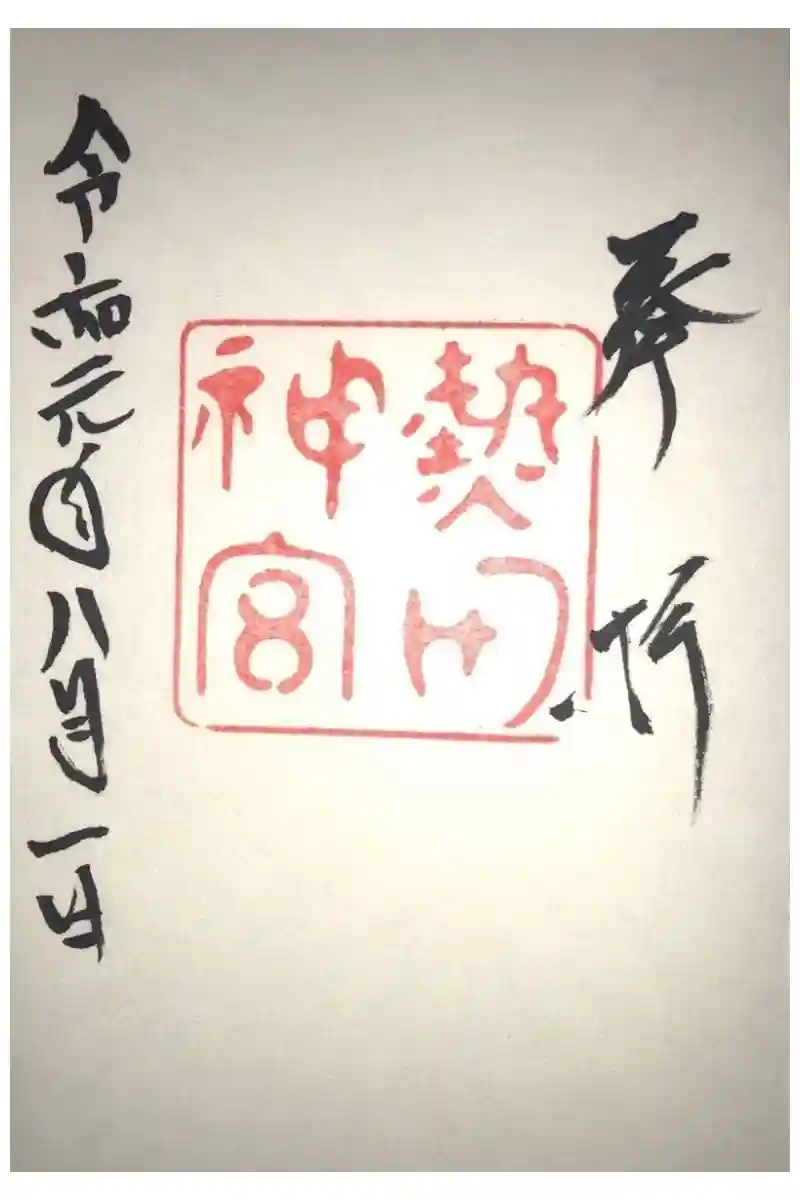 奉拝
熱田
神宮
令和元年八月一日